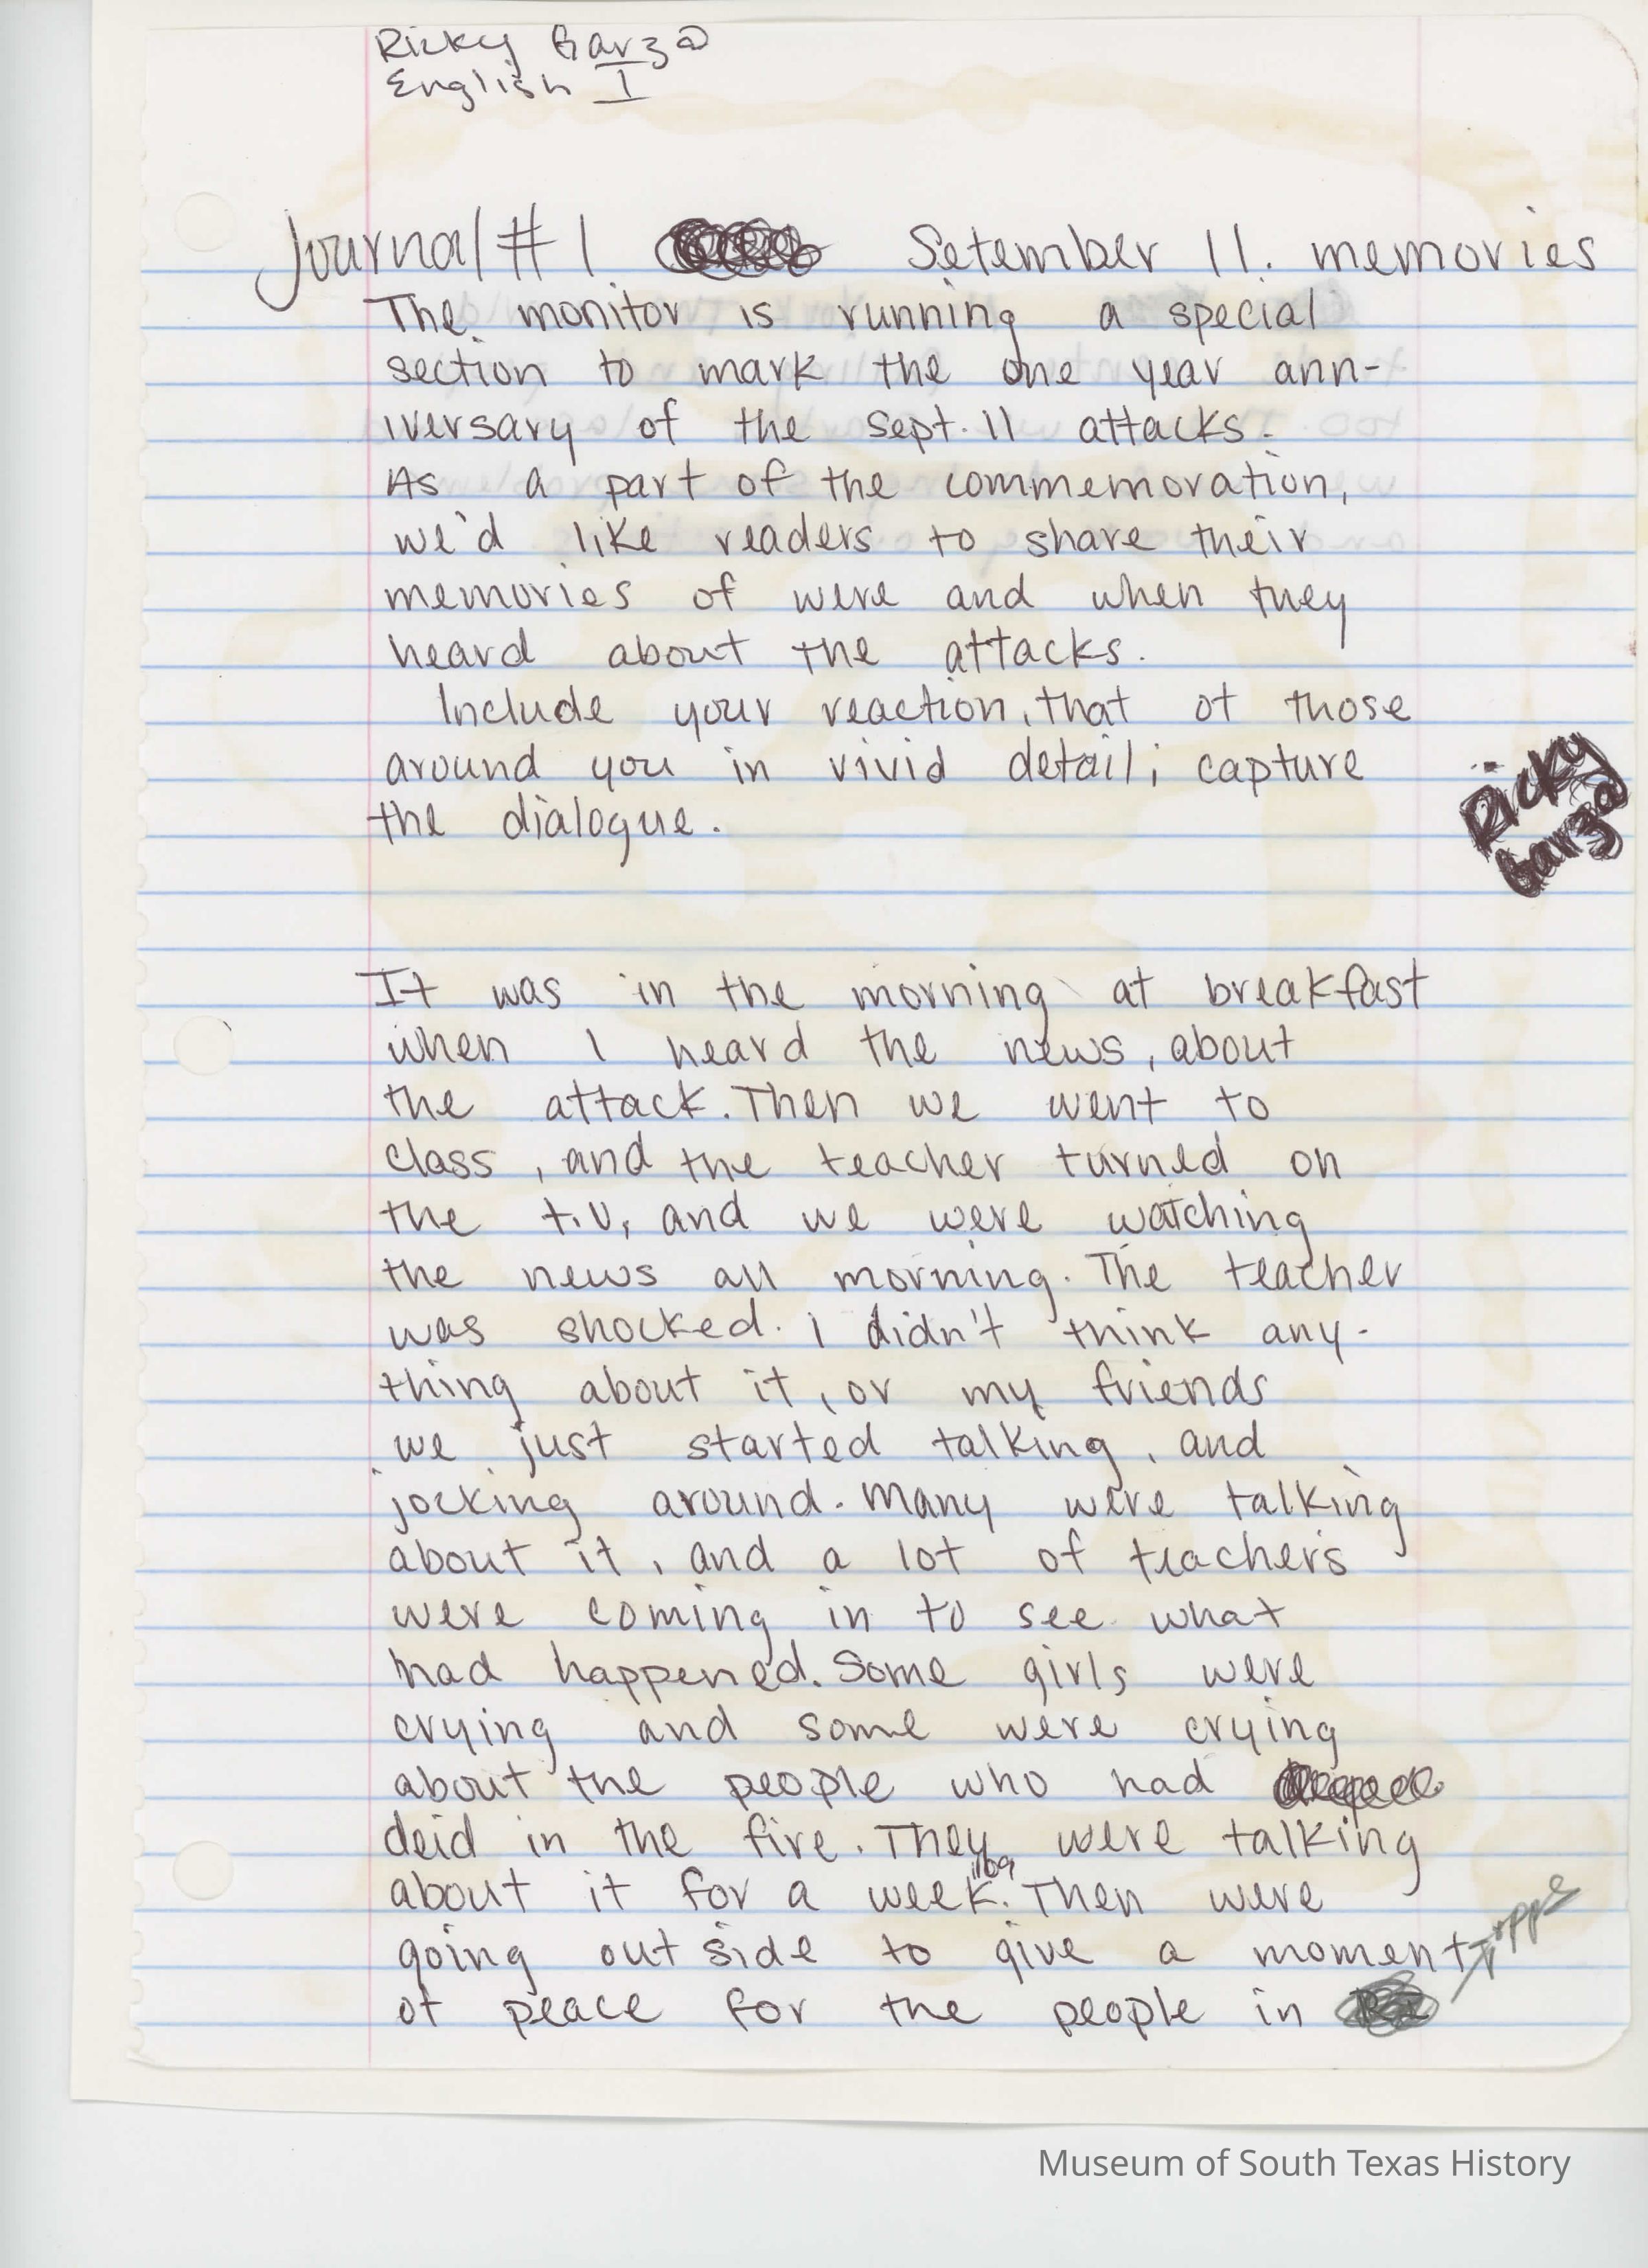 Ricky Garza
English I
Journal # 1 Setember 11. memories
The monitor is running a special
section to mark the one year ann-
iversary of the Sept. 11 attacks.
As a part of the commemoration,
we'd like readers to share their
memories of were and when they
heard about the attacks.
Include your reaction, that ot those
around you in vivid detail; capture
the dialogue.
Ricky
Garza
It was in the morning at breakfast
when I heard the news, about
the attack. Then we went to
class, and the teacher turned on
the t.v, and we were watching
the news all morning. The teacher
was shocked. i didn't think any-
thing about it, or my friends
we just started talking, and
jocking around. Many were talking
about it, and a lot of teachers
were coming in to see what
had happened. Some girls were
crying and some were crying
about the people who had
deid in the fire. They were talking
about it for a week. Then were
going out side to give a moment
ot peace for the people in
Museum of South Texas History